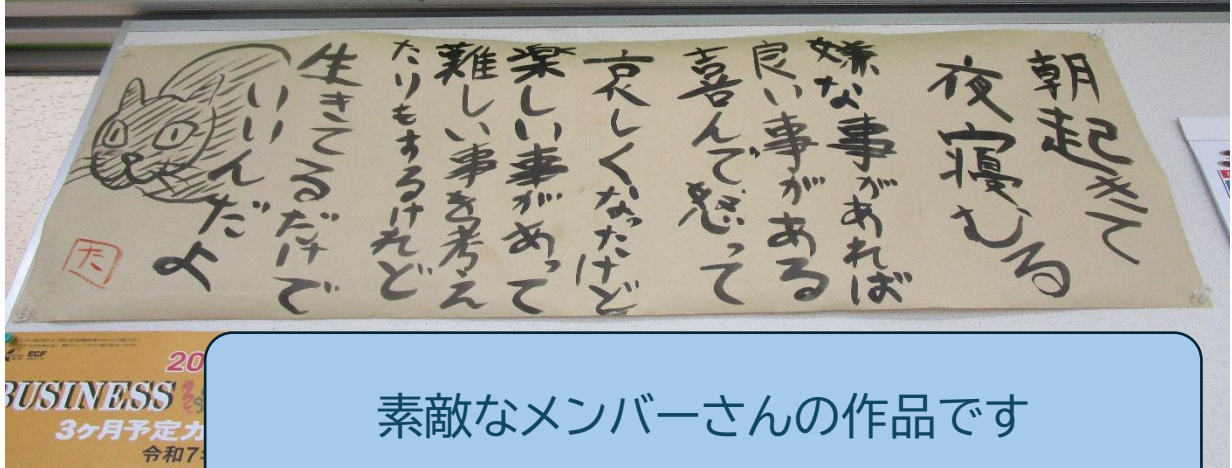 朝起きて
夜寝むる
嫌な事があれば
良い事がある
喜んで怒って
哀しくなったけど
楽しい事があって
難しい事を考え
たりもするけれど
生きてるだけで
いいんだよ
た
ECF
20
BUSINESS
3ヶ月予定カ
令和7
素敵なメンバーさんの作品です